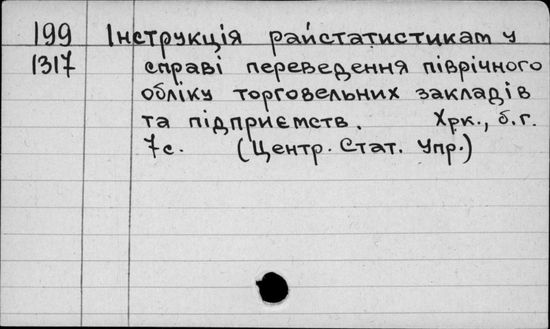 199 Інструкція райстатистикам у
1317 справі переведення піврічного
обліку торговельних закладів
та підприємств. Хрк., б.г.
7с. (Центр. Стат. Упр.)